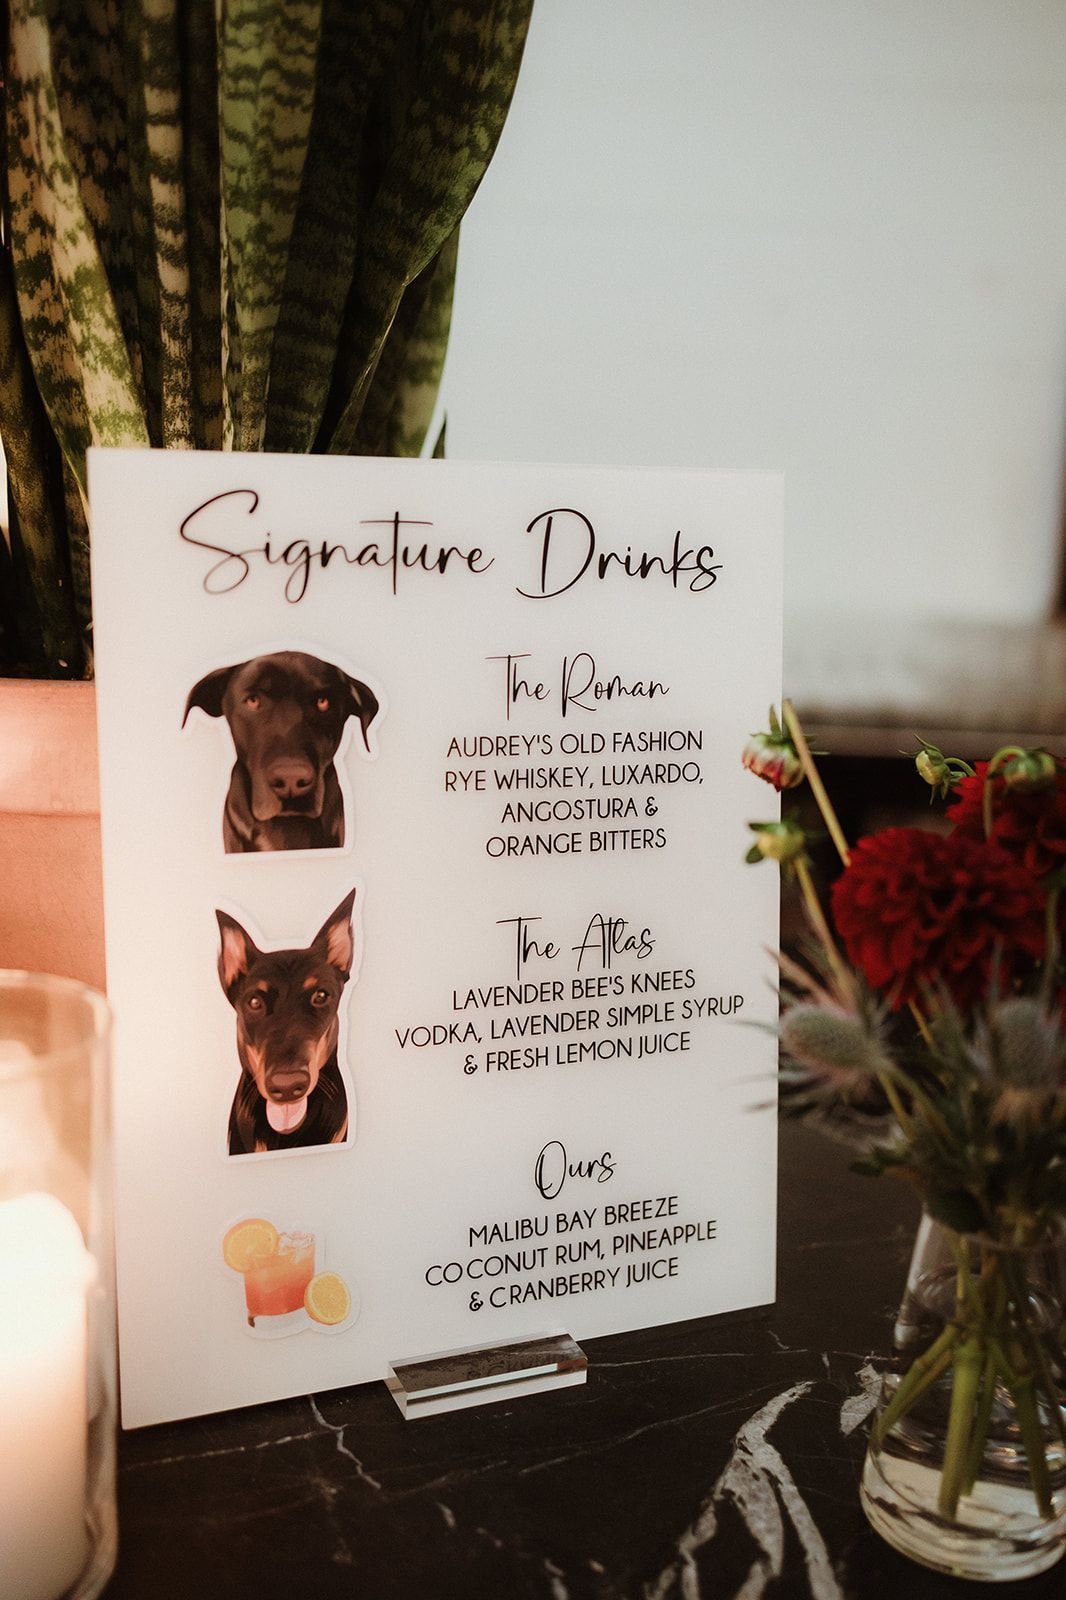 Signature Drinks
The Roman
AUDREY'S OLD FASHION
RYE WHISKEY, LUXARDO,
ANGOSTURA &
ORANGE BITTERS
The Atlas
LAVENDER BEE'S KNEES
VODKA, LAVENDER SIMPLE SYRUP
& FRESH LEMON JUICE
Ours
MALIBU BAY BREEZE
COCONUT RUM, PINEAPPLE
& CRANBERRY JUICE